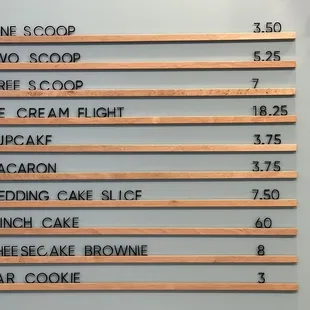 NE SCOOP 3.50
WO SCOOP 5.25
REE SCOOP 7
E CREAM FLIGHT 18.25
UPCAKE 3.75
ACARON 3.75
EDDING CAKE SLICE 7.50
INCH CAKE 60
HEESECAKE BROWNIE 8
AR COOKIE 3